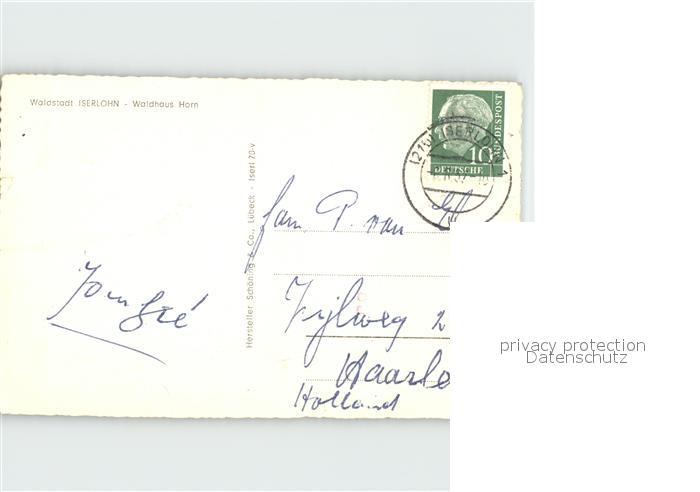 Waldstadt ISERLOHN - Waldhaus Horn
BUNDESPOST
10
DEUTSCHE
(21b) ISERLOHN 1
Hersteller Schöning & Co., Lübeck - Iserl 70-v
Fam. P. van
Haarle
Holland
privacy protection
Datenschutz